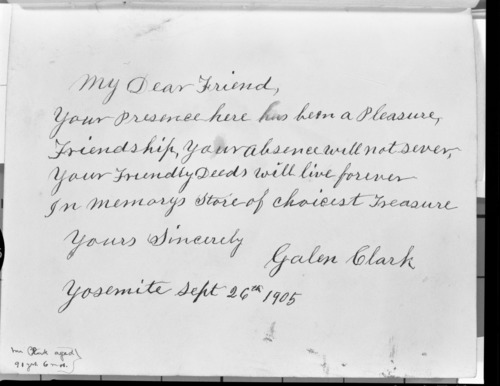 My Dear Friend,
Your Presence here has been a Pleasure,
Friendship, Your absence will not sever,
Your Friendly Deeds will live forever
In memorys Store of choicest Treasure
Yours Sincerely
Galen Clark
Yosemite Sept 26th 1905
Mr Clark aged
91 yrs 6 mos.